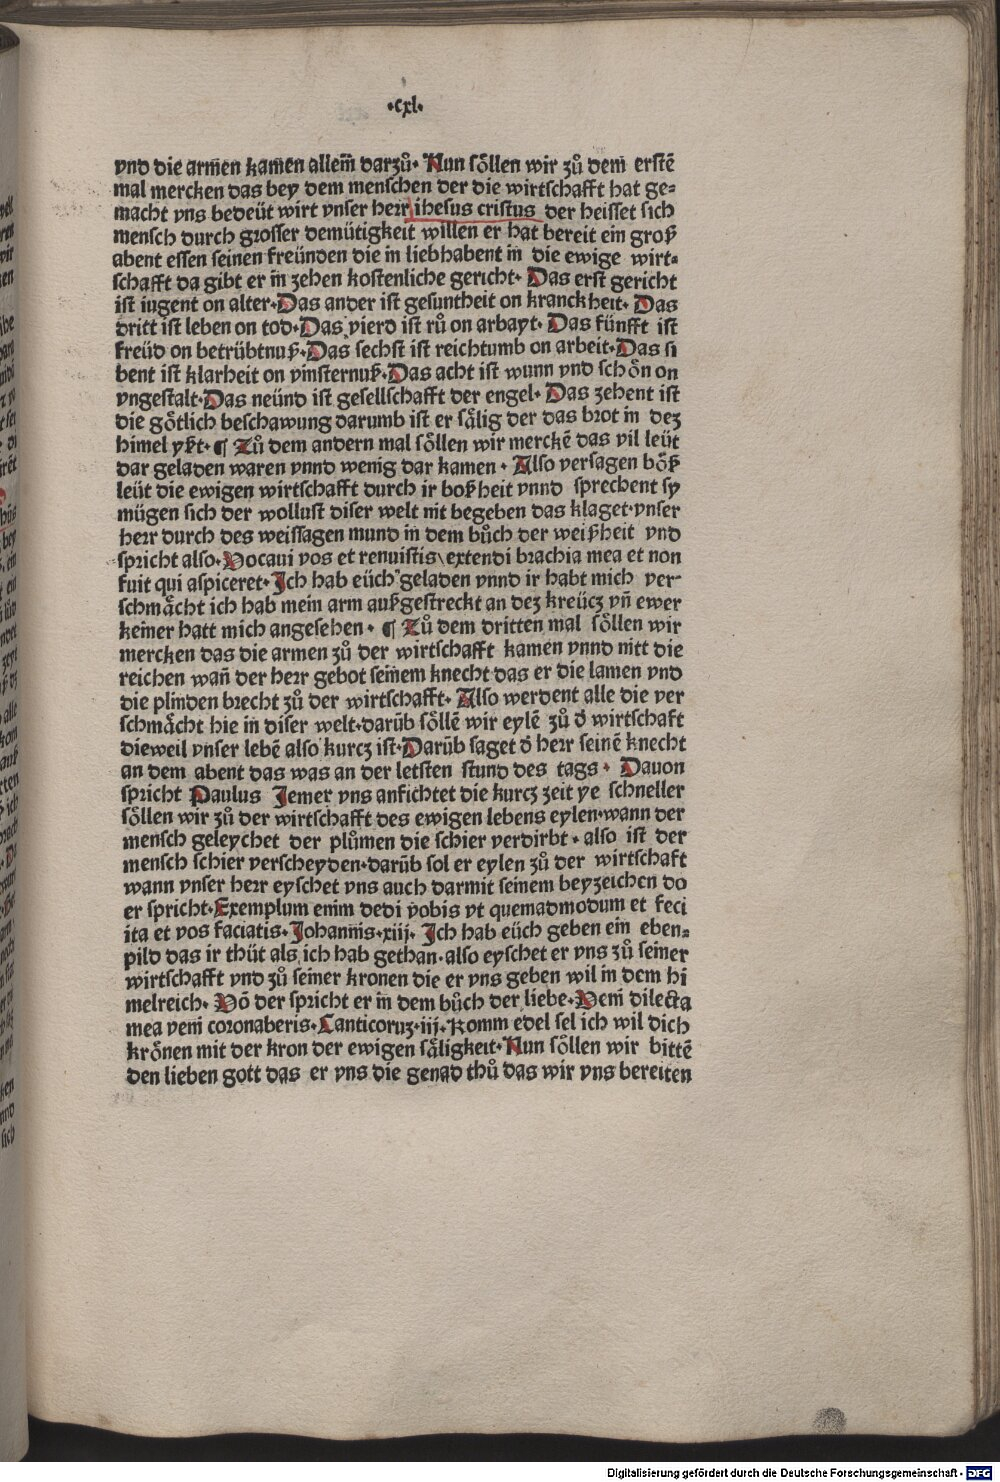 ·cxl·
vnd die armen kamen allem̃ darzů· Nun söllen wir zů dem erstē
mal mercken das bey dem menschen der die wirtschafft hat ge-
macht vns bedeüt wirt vnser herr ihesus cristus der heisset sich
mensch durch grosser demütigkeit willen er hat bereit ein groß
abent essen seinen freünden die in liebhabent in die ewige wirt-
schafft da gibt er in zehen kostenliche gericht· Das erst gericht
ist iugent on alter·Das ander ist gesuntheit on kranckheit· Das
dritt ist leben on tod·Das vierd ist rů on arbayt· Das fünfft ist
freüd on betrübtnuß·Das sechst ist reichtumb on arbeit·Das si
bent ist klarheit on vinsternuß·Das acht ist wunn vnd schön on
vngestalt·Das neünd ist gesellschafft der engel· Das zehent ist
die götlich beschawung darumb ist er sälig der das brot in dez
himel yßt·¶ Zů dem andern mal söllen wir merckē das vil leüt
dar geladen waren vnnd wenig dar kamen· Also versagen böß
leüt die ewigen wirtschafft durch ir boßheit vnnd sprechent sy
mügen sich der wollust diser welt nit begeben das klaget·vnser
herr durch des weissagen mund in dem bůch der weißheit vnd
spricht also·Vocaui vos et renuistis\extendi brachia mea et non
fuit qui aspiceret·Ich hab eüch geladen vnnd ir habt mich ver-
schmächt ich hab mein arm außgestreckt an dez kreücz vñ ewer
keiner hatt mich angesehen· ¶ Zů dem dritten mal söllen wir
mercken das die armen zů der wirtschafft kamen vnnd nitt die
reichen wañ der herr gebot seinem knecht das er die lamen vnd
die plinden brecht zů der wirtschafft· Also werdent alle die ver
schmächt hie in diser welt·darūb söllē wir eylē zů d̄ wirtschaft
dieweil vnser lebē also kurcz ist·Darūb saget d̄ herr seinē knecht
an dem abent das was an der letsten stund des tags· Dauon
spricht Paulus Jemer vns anfichtet die kurcz zeit ye schneller
söllen wir zů der wirtschafft des ewigen lebens eylen·wann der
mensch geleychet der plůmen die schier verdirbt· also ist der
mensch schier verscheyden·darūb sol er eylen zů der wirtschaft
wann vnser herr eyschet vns auch darmit seinem beyzeichen do
er spricht·Exemplum enim dedi vobis vt quemadmodum et feci
ita et vos faciatis·Johannis·xiij· Ich hab eüch geben ein eben-
pild das ir thüt als ich hab gethan·also eyschet er vns zů seiner
wirtschafft vnd zů seiner kronen die er vns geben wil in dem hi
melreich· Võ der spricht er in dem bůch der liebe·Veni dilecta
mea veni coronaberis·Canticoruz·iij·Komm edel sel ich wil dich
krönen mit der kron der ewigen säligkeit·Nun söllen wir bittē
den lieben gott das er vns die genad thů das wir vns bereiten
Digitalisierung gefördert durch die Deutsche Forschungsgemeinschaft - DFG